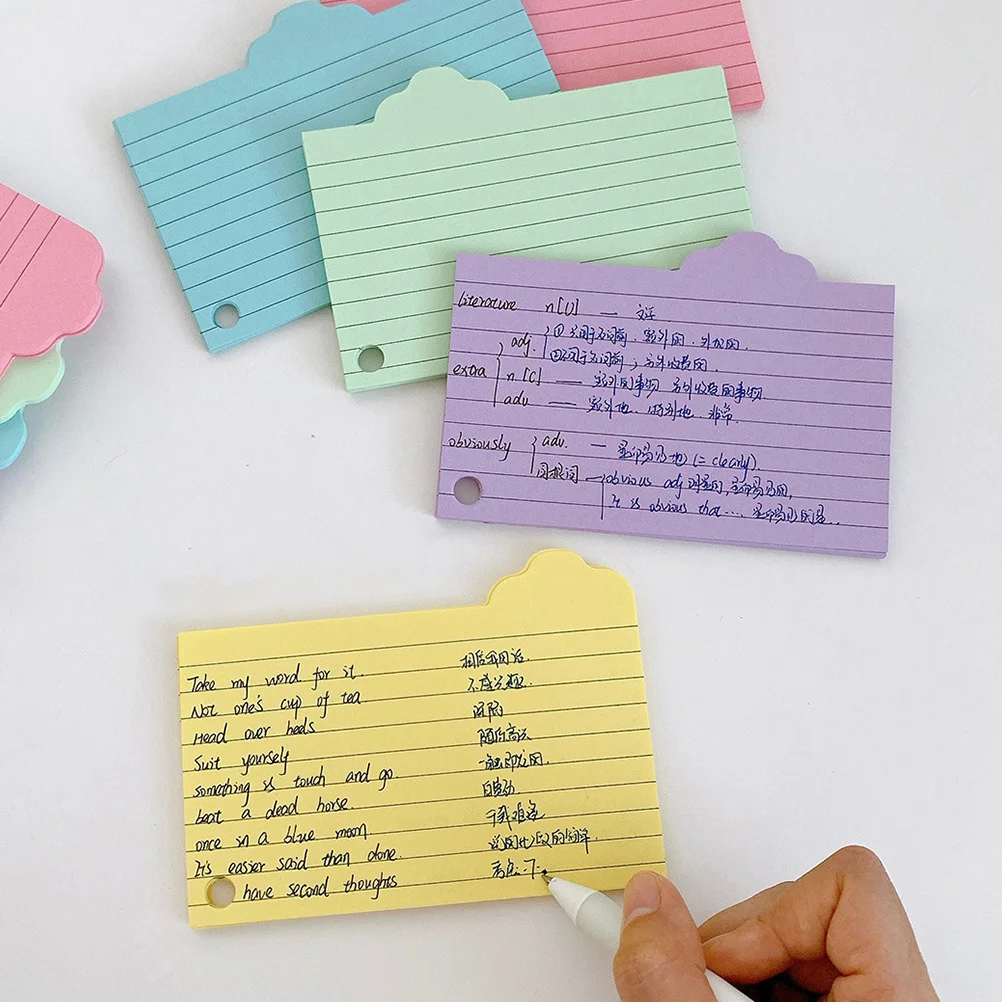 literature n[U] — 文学
adj. ①只用于名词前. 额外的. 外加的.
②不用于名词前; 另外收费的.
extra n [C] — 额外的事物 另外收费的事物
adv — 额外地. 特别地. 非常
obviously adv. — 显而易见地 (= clearly).
同根词 obvious adj 明显的, 显而易见的,
It is obvious that .... 显而易见的是...
Take my word for it. 相信我的话.
Not one's cup of tea 不感兴趣.
Head over heels
Suit yourself 随你高兴
something is touch and go 一触即发的.
beat a dead horse. 白费劲.
once in a blue moon 千载难逢
It's easier said than done. 说的比做的简单.
have second thoughts